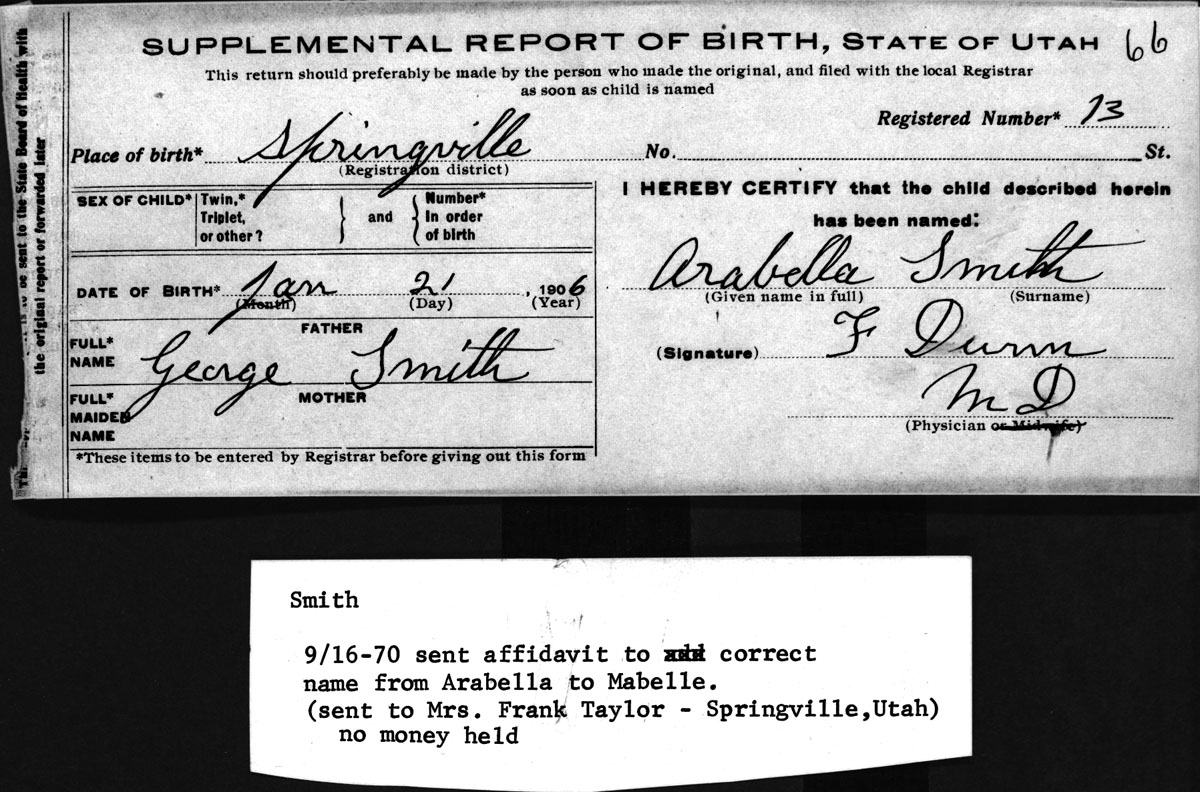 SUPPLEMENTAL REPORT OF BIRTH, STATE OF UTAH 66
This return should preferably be made by the person who made the original, and filed with the local Registrar
as soon as child is named
Registered Number* 73
Place of birth* Springville No. St.
(Registration district)
SEX OF CHILD* Twin,* Triplet, or other? } and { Number* In order of birth
DATE OF BIRTH* Jan 21, 1906
(Month) (Day) (Year)
FATHER
FULL* NAME George Smith
MOTHER
FULL* MAIDEN NAME
*These items to be entered by Registrar before giving out this form
I HEREBY CERTIFY that the child described herein
has been named:
Arabella Smith
(Given name in full) (Surname)
(Signature) F Dunn
M D
(Physician or Midwife)
to be sent to the State Board of Health with
the original report or forwarded later
Smith
9/16-70 sent affidavit to correct
name from Arabella to Mabelle.
(sent to Mrs. Frank Taylor - Springville,Utah)
no money held